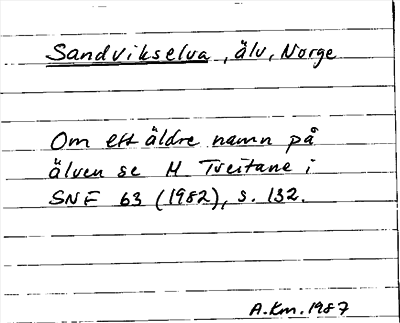 Sandvikselva, älv, Norge
Om ett äldre namn på
älven se M Tveitane i
SNF 63 (1982), s. 132.
A.Km. 1987